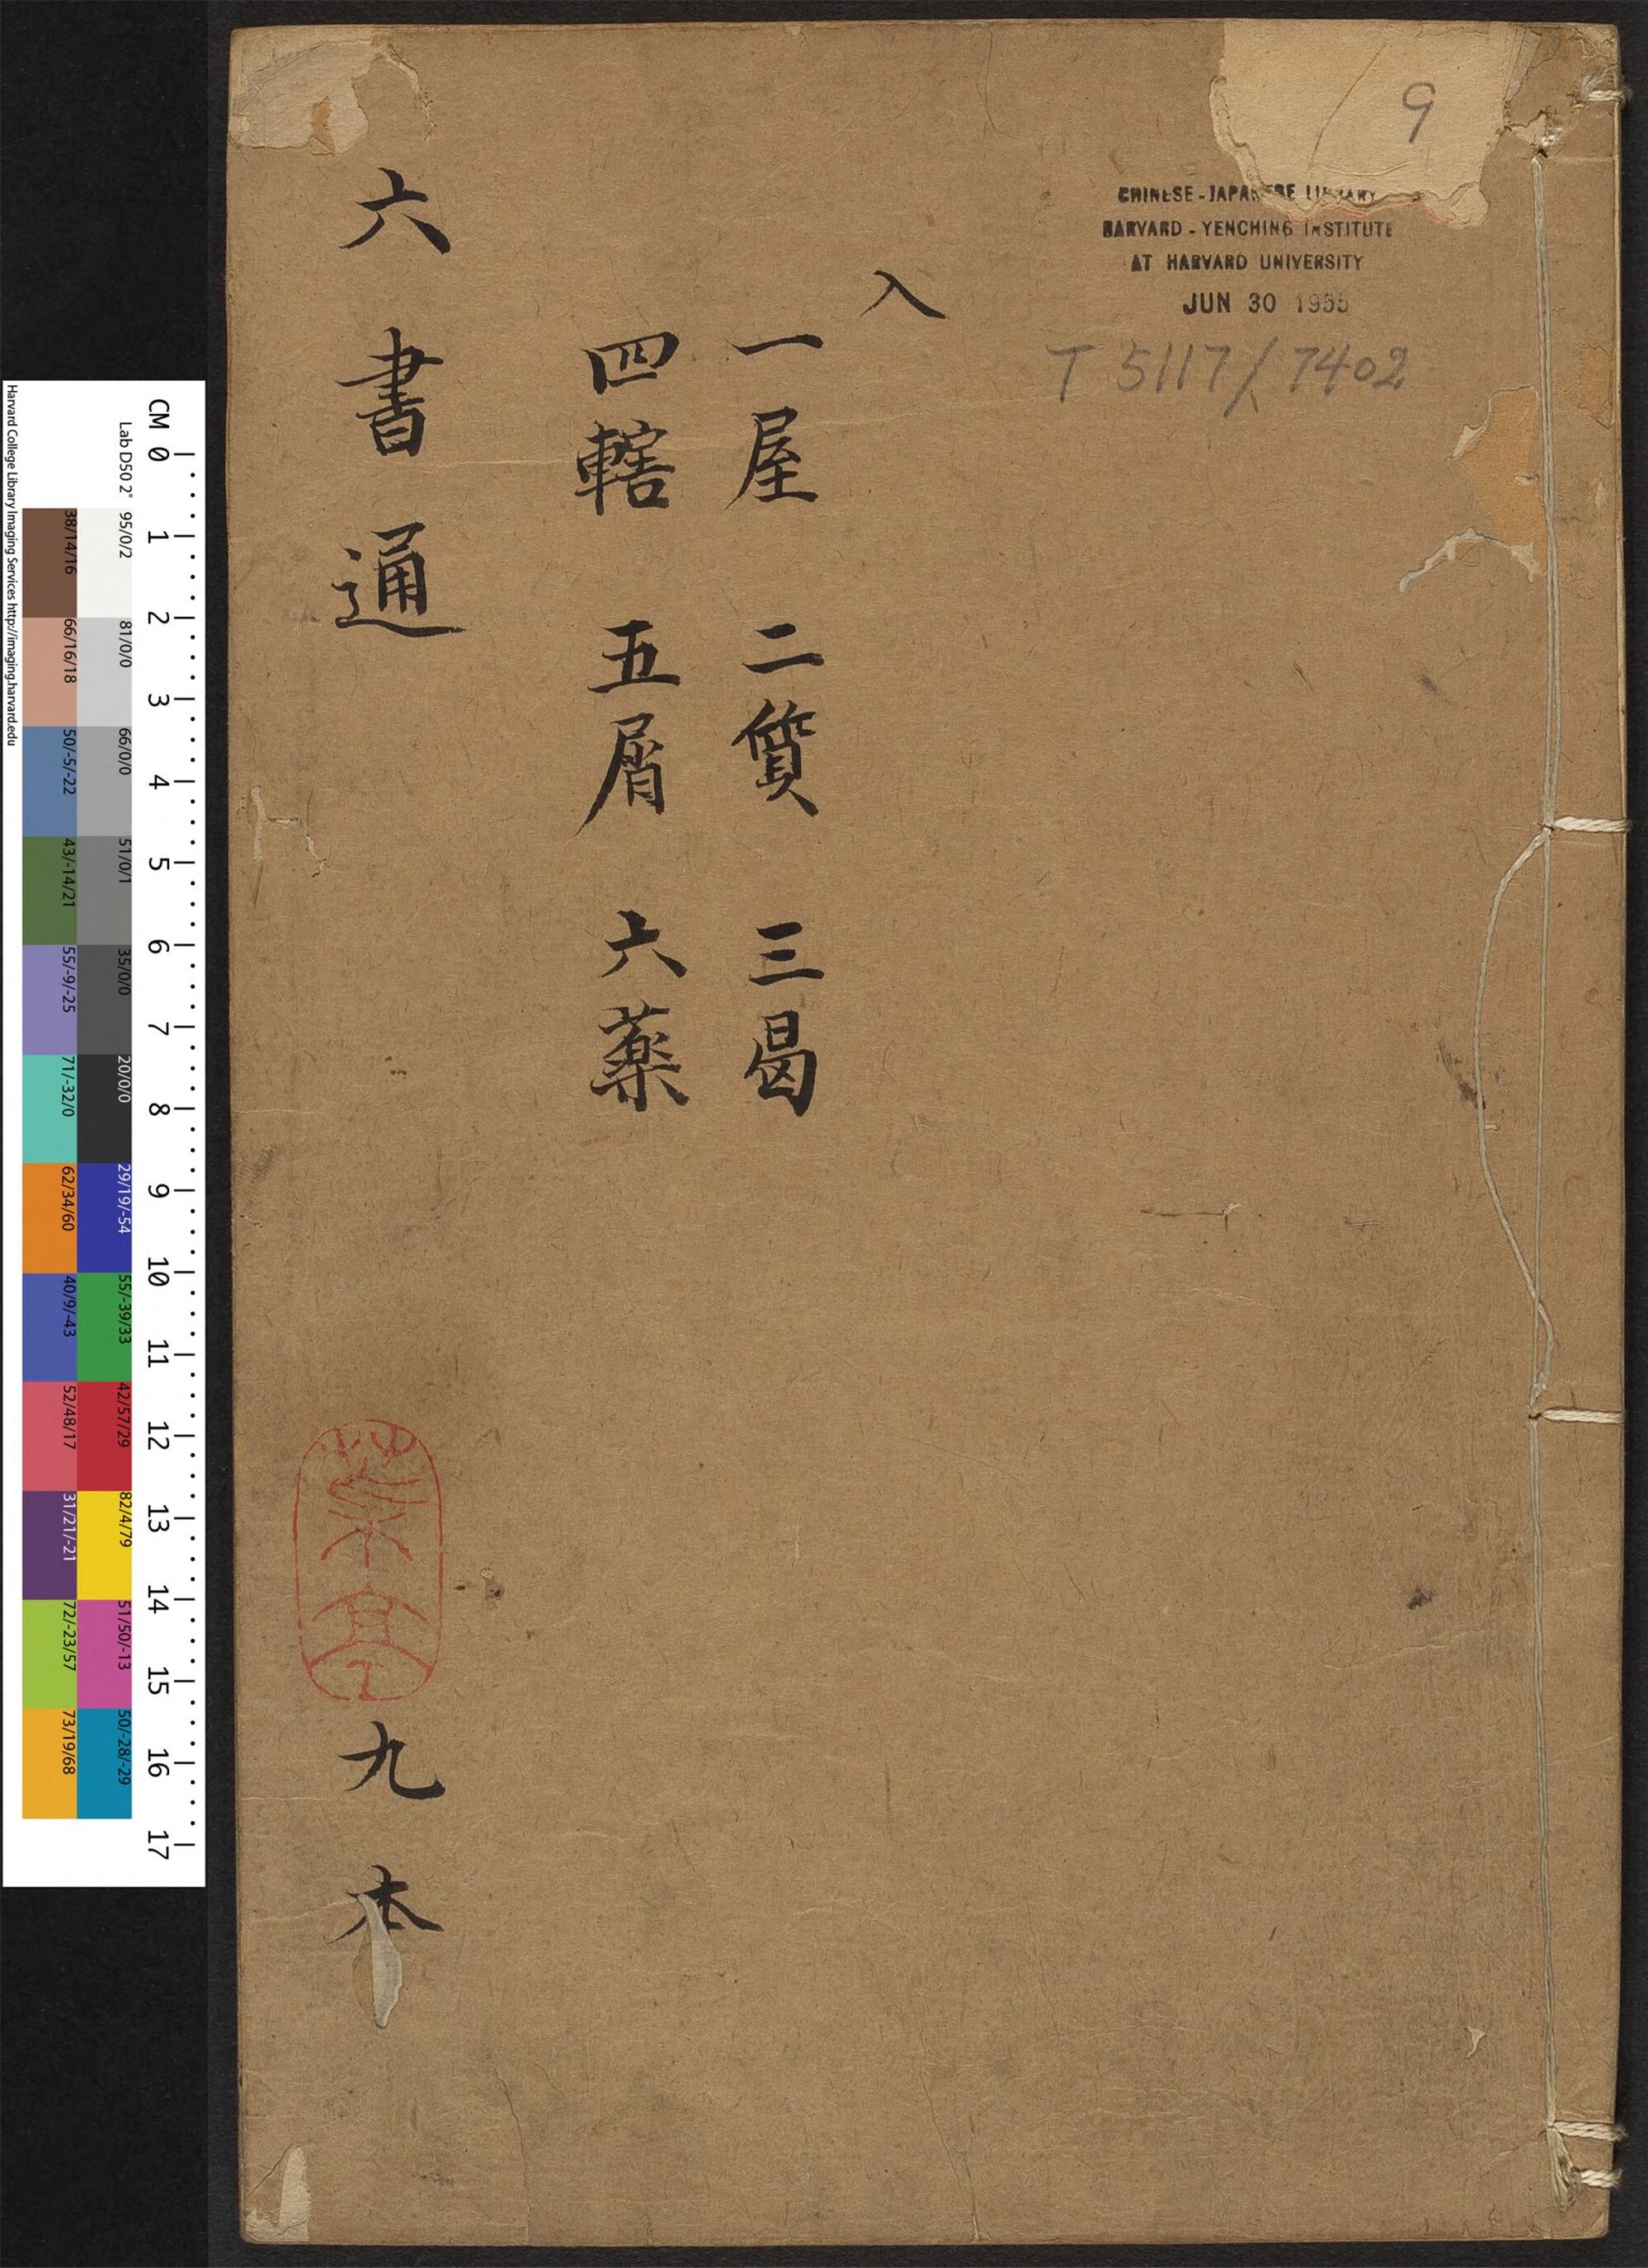 9
CHINESE-JAPANESE LIBRARY
HARVARD-YENCHING INSTITUTE
AT HARVARD UNIVERSITY
JUN 30 1955
T 5117/7402
入
一屋 二質 三曷
四轄 五屑 六藥
六書通
九本
CM 0 1 2 3 4 5 6 7 8 9 10 11 12 13 14 15 16 17
Lab D50 2° 95/0/2 81/0/0 66/0/0 51/0/1 35/0/0 20/0/0 29/19/-54 55/-39/33 42/57/29 82/4/79 51/50/-13 50/-28/-29
38/14/16 66/16/18 50/-5/-22 43/-14/21 55/-9/-25 71/-32/0 62/34/60 40/9/-43 52/48/17 31/21/-21 72/-23/57 73/19/68
Harvard College Library Imaging Services http://imaging.harvard.edu